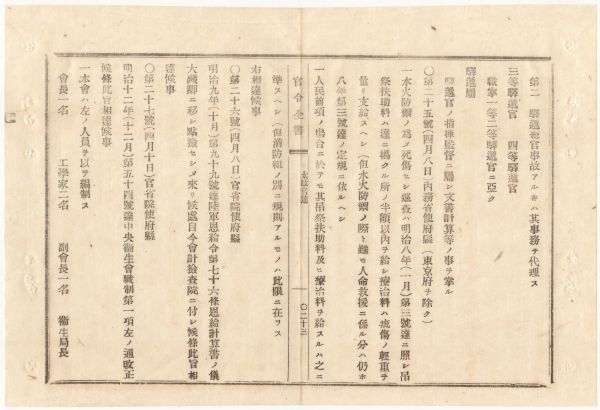 第二 驛遞總官事故アルキハ其事務チ代理ス
三等驛遞官 四等驛遞官
職掌一等二等驛遞官ニ亞ク
驛遞屬
驛遞官ノ指揮監督ニ屬シ文書計算等ノ事チ掌ル
〇第二十五號(四月八日)內務省使府縣(東京府チ除ク)
一水火防禦ノ爲メ死傷セシ巡査ハ明治八年(一月)第三號達ニ照シ吊
祭扶助料ハ達ニ揭クル所ノ半額以內チ給シ療治料ハ疵傷ノ輕重チ
量リ支給スヘシ(但水火防禦ノ際ト雖モ人命救援ニ係ル分ハ仍ホ
八年第三號達ノ定規ニ依ルヘシ
一人民前項ノ塲合ニ於テモ其吊祭扶助料及ヒ療治料チ給スルハ之ニ
官令全書 太政官達 〇二十三
準スヘシ(但消防組ノ別ニ規則アルモノハ此限ニ在ラス
右相達候事
〇第二十六號(四月八日)官省院使府縣
明治九年(十月)第九十九號達陸軍恩給令第七十六條恩給計算書ノ儀
大藏卿ニ移シ點撿セシメ來リ候處自今會計撿査院ニ付シ候條此旨相
達候事
〇第二十七號(四月十日)官省院使府縣
明治十二年(十二月)第五十四號達中央衞生會職制第一項左ノ通改正
候條此旨相達候事
一本會ハ左ノ人員チ以テ編制ス
會長一名 工學家二名 副會長一名 衞生局長